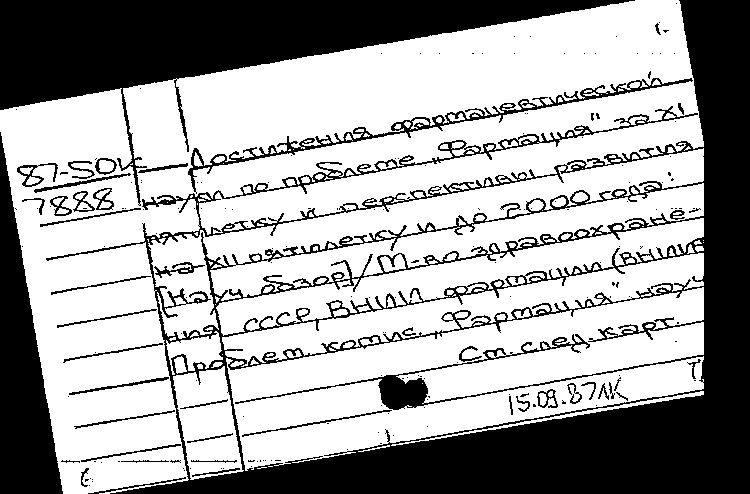 1.
87-50к Достижения фармацевтической
7888 науки по проблеме „Фармация" за XI
пятилетку и перспективы развития
на XII пятилетку и до 2000 года:
[Науч. обзор] / М-во здравоохране-
ния СССР, ВНИИ фармации (ВНИИФ
Проблем. комис. „Фармация" науч
См. след. карт.
15.09.87